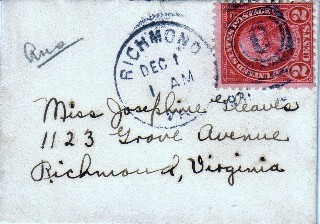 Ans
RICHMOND
DEC 1
1 AM
VA.
UNITED STATES POSTAGE
2 CENTS 2
Miss Josephine Reaves
1123 Grove Avenue
Richmond, Virginia